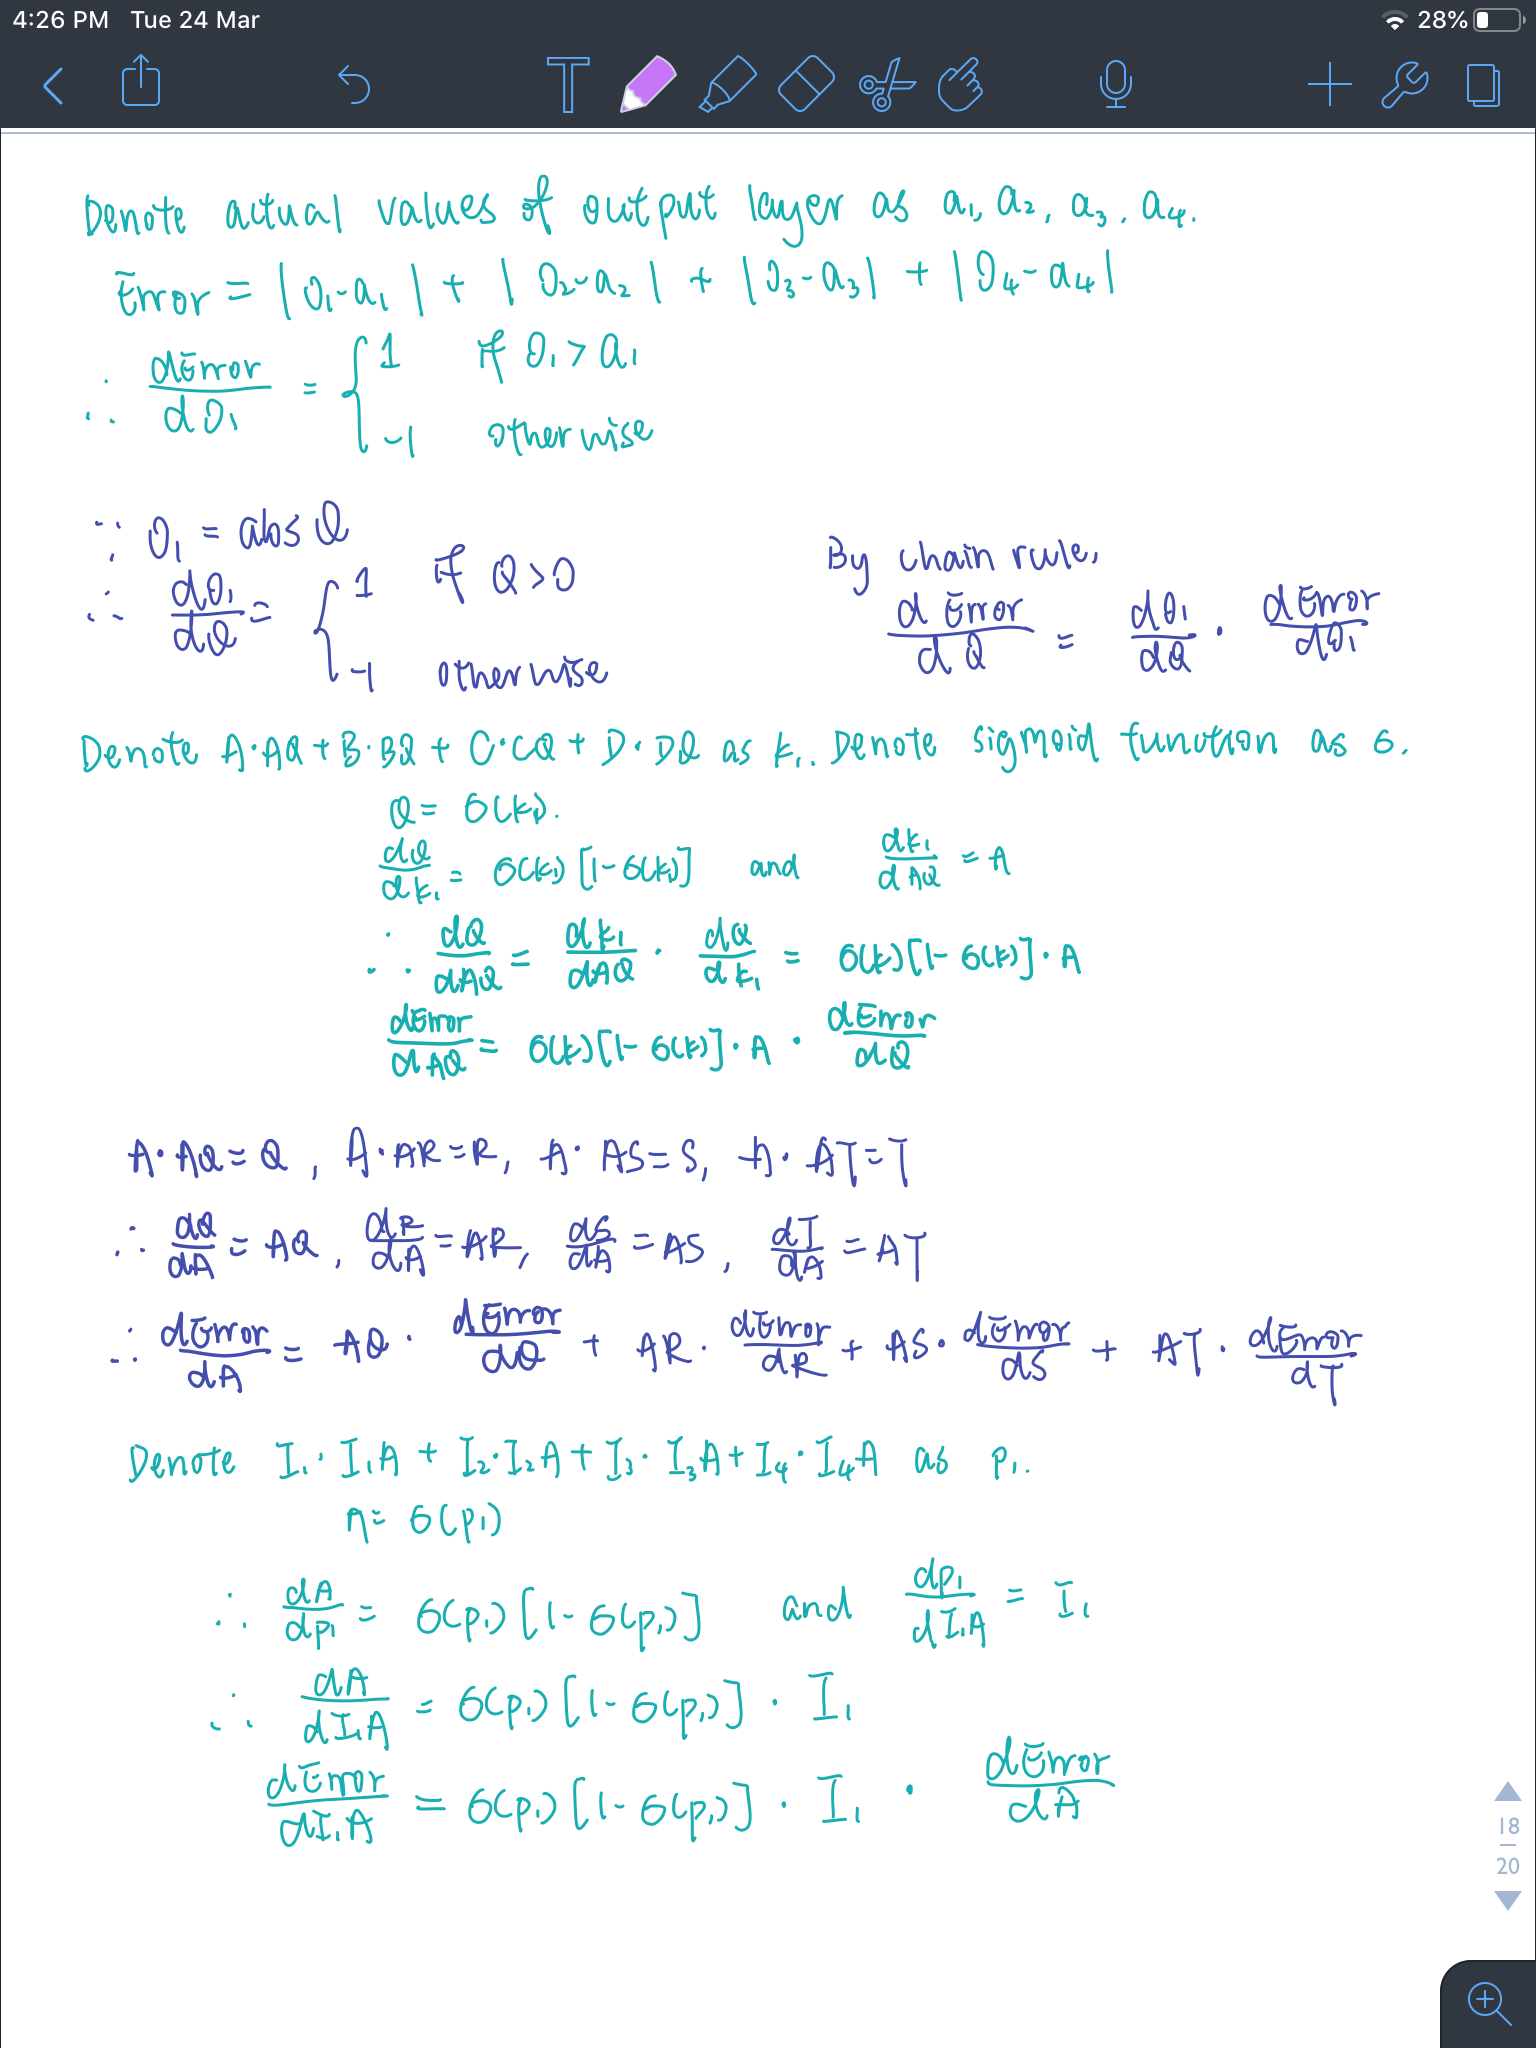 4:26 PM Tue 24 Mar 28%
Denote actual values of output layer as a₁, a₂, a₃, a₄.
Error = |O₁-a₁| + |O₂-a₂| + |O₃-a₃| + |O₄-a₄|
∴ dError/dO₁ = { 1 if O₁ > a₁
-1 otherwise
∵ O₁ = abs Q
∴ dO₁/dQ = { 1 if Q>0
-1 otherwise
By chain rule,
d Error/dQ = dO₁/dQ · dError/dO₁
Denote A·AQ + B·BQ + C·CQ + D·DQ as k₁. Denote sigmoid function as σ.
Q = σ(k₁).
dQ/dk₁ = σ(k₁)[1-σ(k₁)] and dk₁/dAQ = A
∴ dQ/dAQ = dk₁/dAQ · dQ/dk₁ = σ(k)[1-σ(k)]·A
dError/dAQ = σ(k)[1-σ(k)]·A · dError/dQ
A·AQ=Q, A·AR=R, A·AS=S, A·AT=T
∴ dQ/dA = AQ, dR/dA = AR, dS/dA = AS, dT/dA = AT
∴ dError/dA = AQ · dError/dQ + AR · dError/dR + AS · dError/dS + AT · dError/dT
Denote I₁·I₁A + I₂·I₂A + I₃·I₃A + I₄·I₄A as p₁.
A = σ(p₁)
∴ dA/dp₁ = σ(p₁)[1-σ(p₁)] and dp₁/dI₁A = I₁
∴ dA/dI₁A = σ(p₁)[1-σ(p₁)] · I₁
dError/dI₁A = σ(p₁)[1-σ(p₁)] · I₁ · dError/dA
18
20